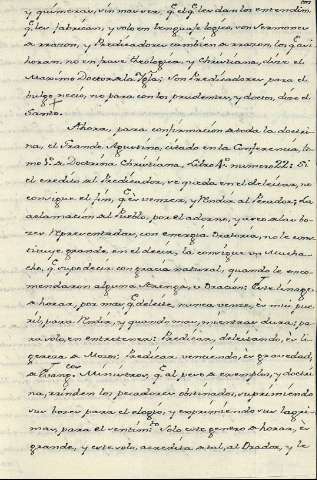 y quimeras, sin mas ver, q.e el q.e les dan los entendim.
q.e les fabrican, y solo en lenguaje logico, son sermones
a razon, y Predicadores tambien a razon, los q.e assi
horam, no en frase Theologica, y Christiana, dixo el
Maximo Doctor a la Ygla; son Predicadores para el
bulgo necio, ne para con los prudentes, y doctos, dixo el
Santo.
Ahora, para confirmacion a toda la doctri-
na, el Grande Agustino, citado en la Conferencia, to-
mo 3.o a Doctrina Christiana, Libro 4.o numero 22: Si
el credito al Predicador, se queda en el deleitar, no
consigue el fin, q.e es vencer, y rendir al Pecador; La
aclamacion al Pueblo, por el adorno, y uso a las bo-
zes Representadas, con energia Oratoria, no le cons-
tituye grande, en el decir, la consigue un Mucha-
cho, q.e supo decir con gracia natural, quando le enco-
mendaron alguna Arenga, u Oracion: Este linage
a horar, por mas q.e deleite, nunca vence, es mui pue-
ril, para rendir, y quando mas, mientras dura; pa-
ra solo, en entretener: Predicar, deleitando, es li-
gereza a Mozos; Predicar venciendo, es gravedad,
a Evang.cos Ministros, q.e al peso a exemplos, y doctri-
na, rinden los pecadores obstinados, suprimiendo
sus bozes para el elogio, y exprimiendo sus lagri-
mas, para el sentim.to Solo este genero a horar, es
grande, y este solo, acredita a tal, al Orador, y le